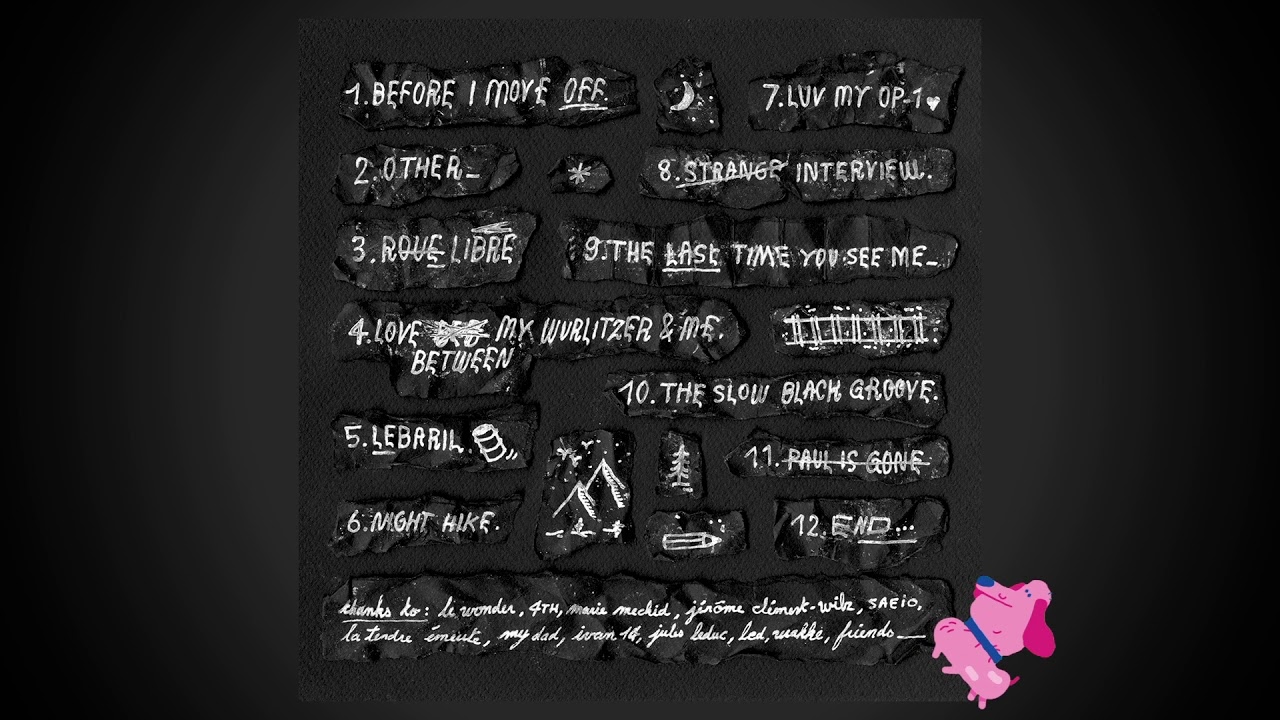 1. BEFORE I MOVE OFF.
2. OTHER_
3. ROUE LIBRE
4. LOVE MY WURLITZER & ME.
BETWEEN
5. LEBARIL.
6. NIGHT HIKE.
7. LUV MY OP-1 ♥
8. STRANGE INTERVIEW.
9. THE LAST TIME YOU SEE ME_
10. THE SLOW BLACK GROOVE.
11. PAUL IS GONE
12. END...
thanks to : le wonder, 4TH, marie mechid, jérôme clément-wilz, SAEIO,
la tendre émeute, my dad, ivan 14, jules leduc, led, friends